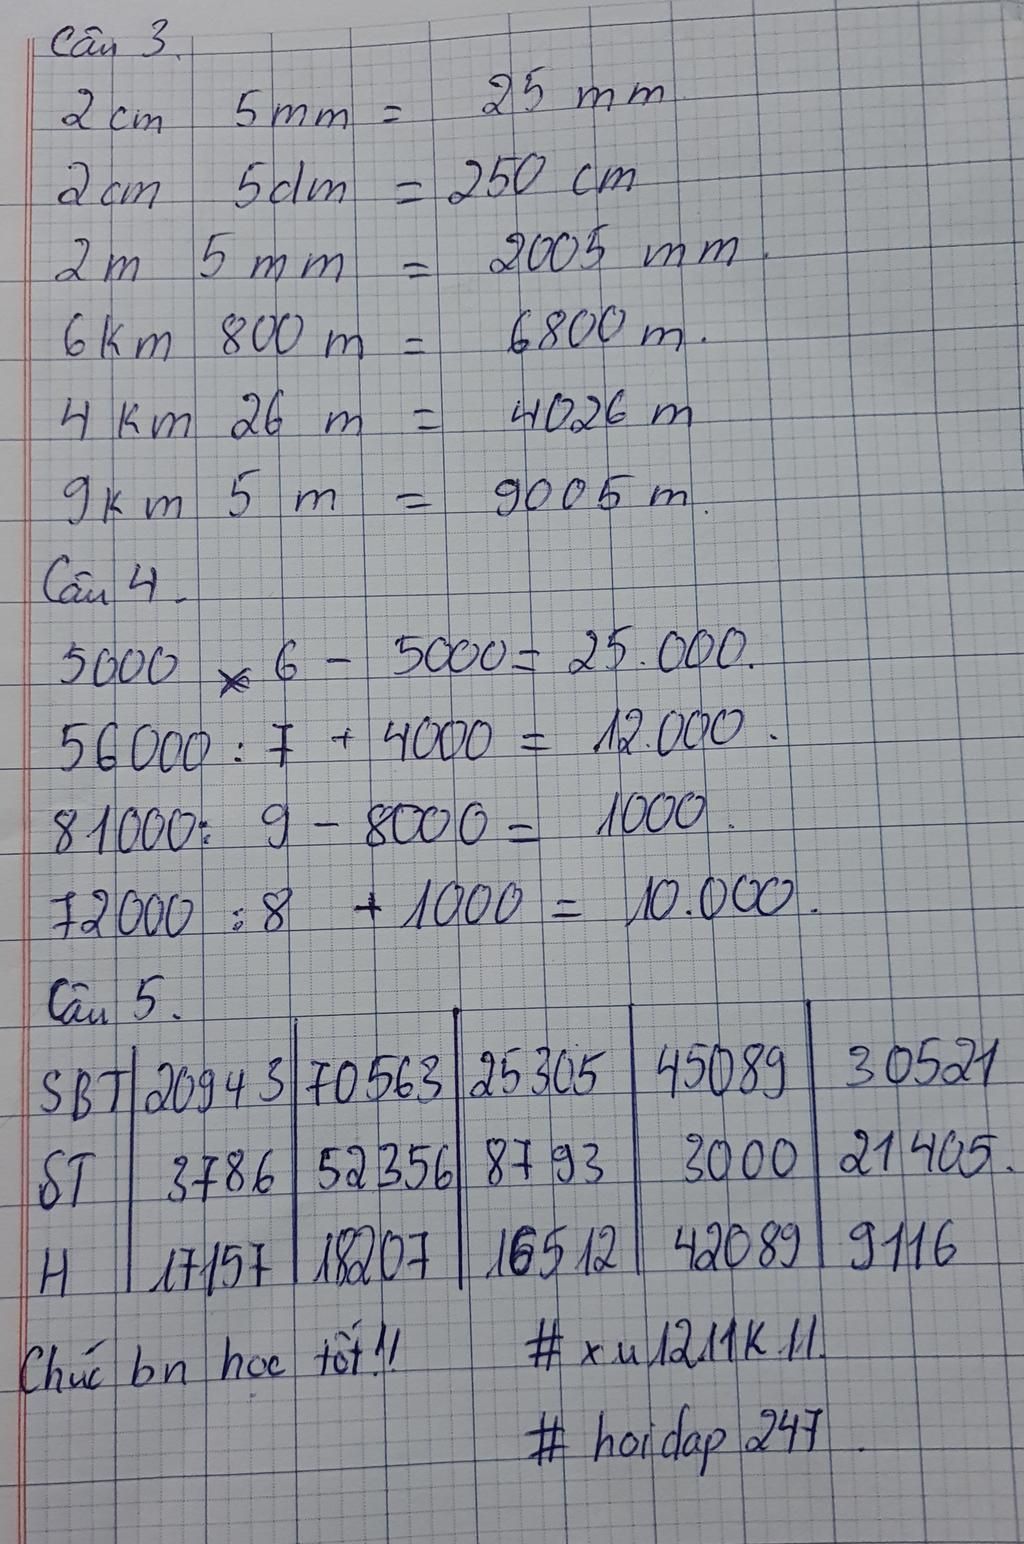 Câu 3.
2cm 5mm = 25 mm
2cm 5dm = 250 cm
2m 5mm = 2005 mm.
6km 800 m = 6800 m.
4 km 26 m = 4026 m
9km 5 m = 9005 m.
Câu 4.
5000 x 6 - 5000 = 25.000.
56000 : 7 + 4000 = 12.000.
81000 : 9 - 8000 = 1000.
72000 : 8 + 1000 = 10.000.
Câu 5.
SBT 20943 70563 25305 45089 30521
ST 3786 52356 8793 3000 21405.
H 17157 18207 16512 42089 9116
Chúc bn học tốt!! # xu1211k11.
# hoidap 247.